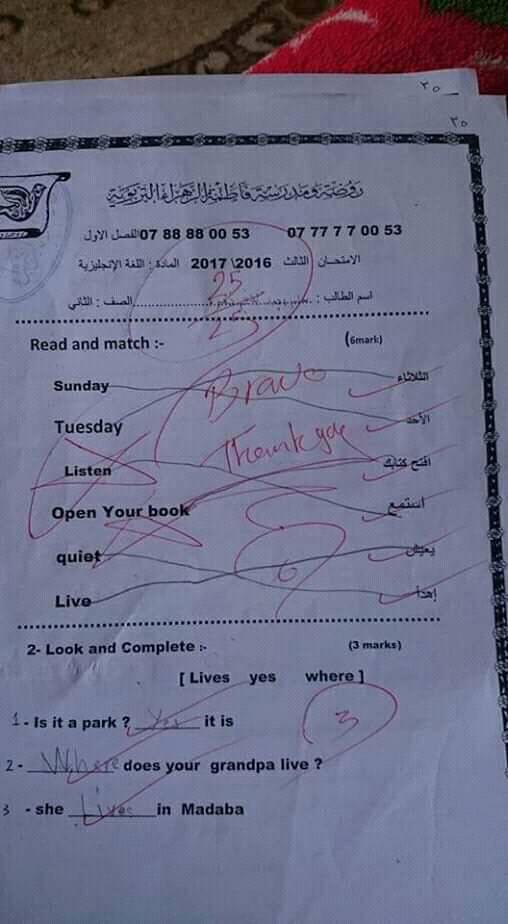 ٣٥
٣٥
روضة ومدرسة فاطمة الزهراء التربوية
07 77 7 7 00 53 07 88 88 00 53 الفصل الاول
الامتحان الثالث 2016\ 2017 المادة : اللغة الإنجليزية
اسم الطالب : ........................ الصف : الثاني
25
25
Read and match :- (6mark)
Sunday الثلاثاء
Bravo
Tuesday الأحد
Thank you
Listen افتح كتابك
Open Your book استمع
quiet يعيش
6
Live إهدأ
2- Look and Complete :- (3 marks)
[ Lives yes where ]
3
1 - Is it a park ? Yes it is
2 - Where does your grandpa live ?
3 - she Lives in Madaba